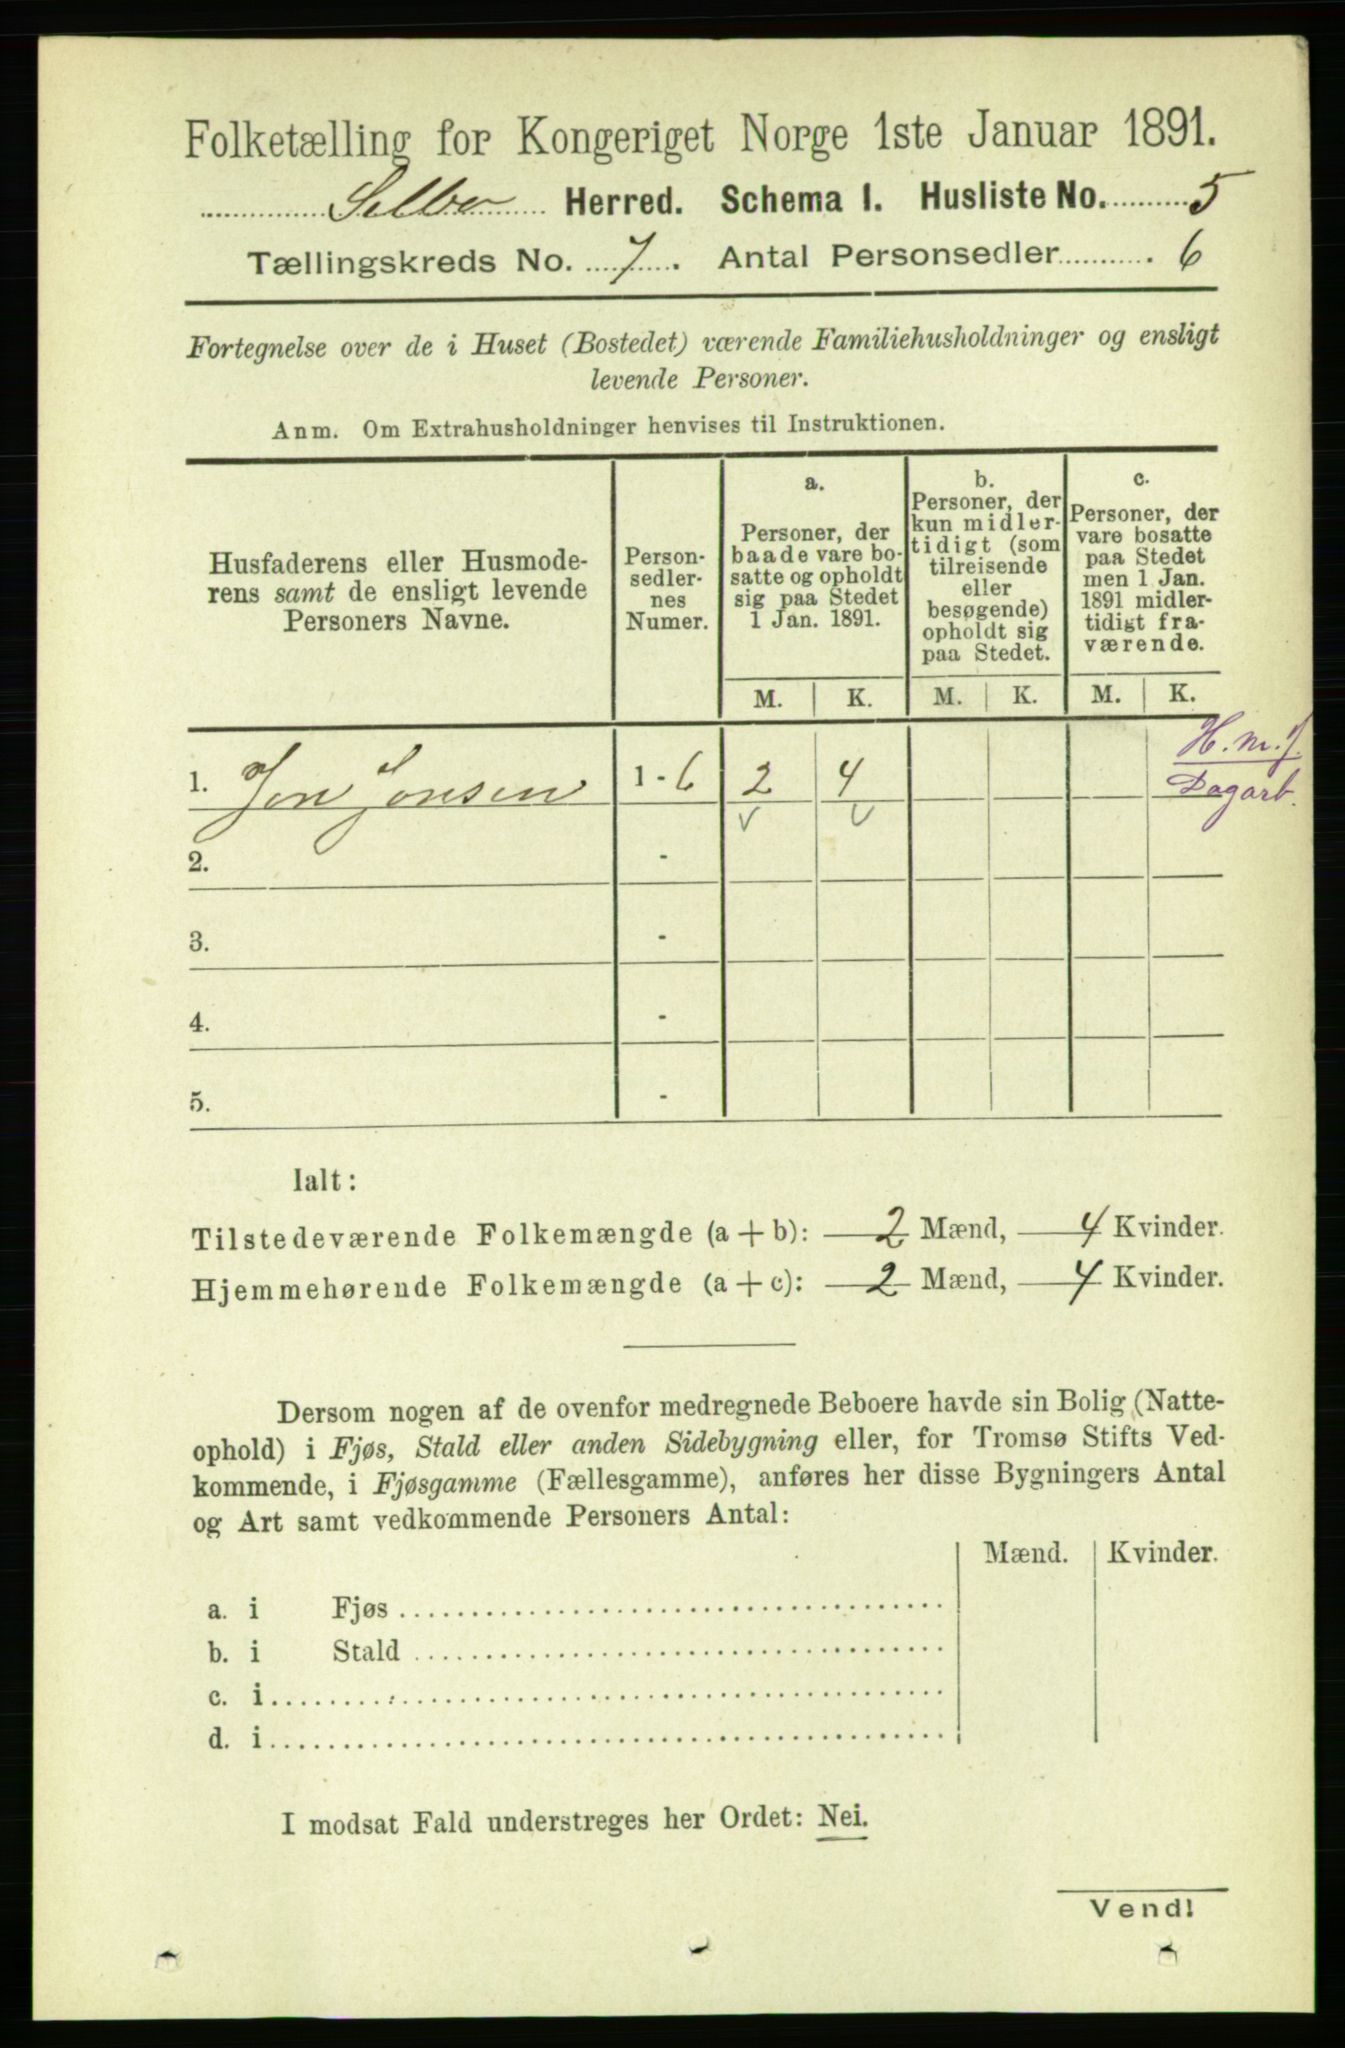 Folketælling for Kongeriget Norge 1ste Januar 1891.
Selbo Herred. Schema I. Husliste No. 5
Tællingskreds No. 7. Antal Personsedler 6
Fortegnelse over de i Huset (Bostedet) værende Familiehusholdninger og ensligt
levende Personer.
Anm. Om Extrahusholdninger henvises til Instruktionen.
Husfaderens eller Husmode-
rens samt de ensligt levende
Personers Navne.
Person-
sedler-
nes
Numer.
a.
Personer, der
baade vare bo-
satte og opholdt
sig paa Stedet
1 Jan. 1891.
b.
Personer, der
kun midler-
tidigt (som
tilreisende
eller
besøgende)
opholdt sig
paa Stedet.
c.
Personer, der
vare bosatte
paa Stedet
men 1 Jan.
1891 midler-
tidigt fra-
værende.
M. K. M. K. M. K.
H.m.J.
Dagarb.
1. Jon Jonsen 1-6 2 4
2. -
3. -
4. -
5. -
Ialt:
Tilstedeværende Folkemængde (a + b): 2 Mænd, 4 Kvinder.
Hjemmehørende Folkemængde (a + c): 2 Mænd, 4 Kvinder.
Dersom nogen af de ovenfor medregnede Beboere havde sin Bolig (Natte-
ophold) i Fjøs, Stald eller anden Sidebygning eller, for Tromsø Stifts Ved-
kommende, i Fjøsgamme (Fællesgamme), anføres her disse Bygningers Antal
og Art samt vedkommende Personers Antal:
Mænd. Kvinder.
a. i Fjøs
b. i Stald
c. i
d. i
I modsat Fald understreges her Ordet: Nei.
Vend!